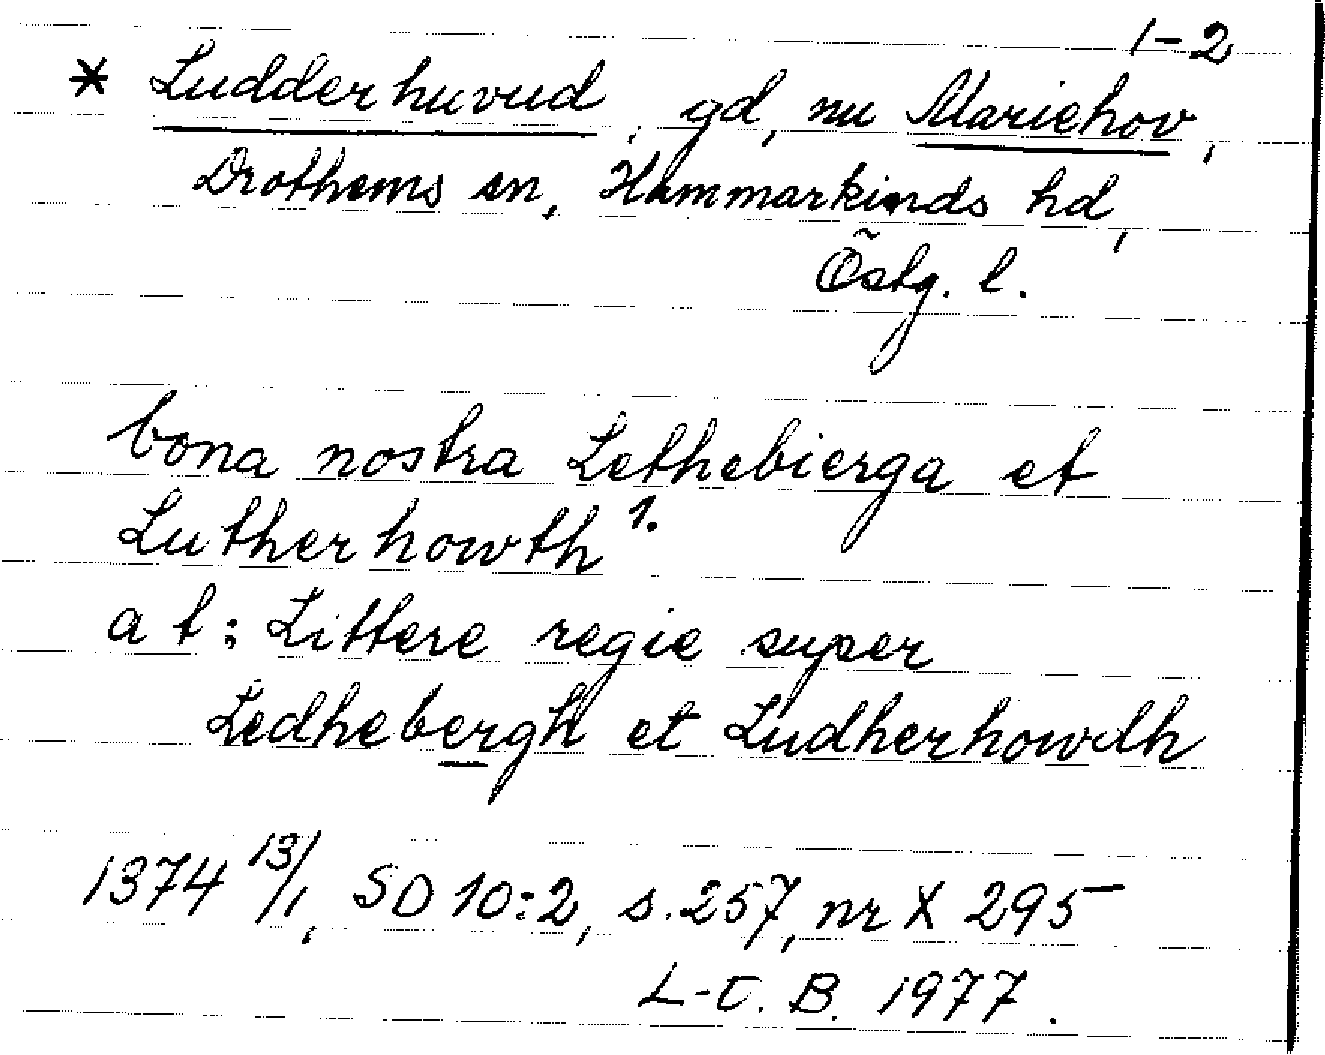 1-2
* Ludderhuvud, gd, nu Mariehov,
Drothems sn, Hammarkinds hd,
Östg. l.
bona nostra Lethebierga et
Lutherhowth 1.
a t: Littere regie super
Ledhebergh et Ludherhowdh
1374 13/1, SD 10:2, s. 257, nr X 295
L-C. B. 1977.